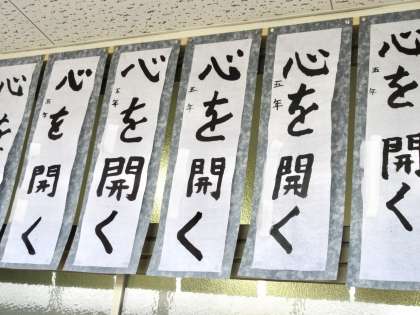 心を
心を開く
五年
心を開く
五年
心を開く
五年
心を開く
五年
心を開く
五年